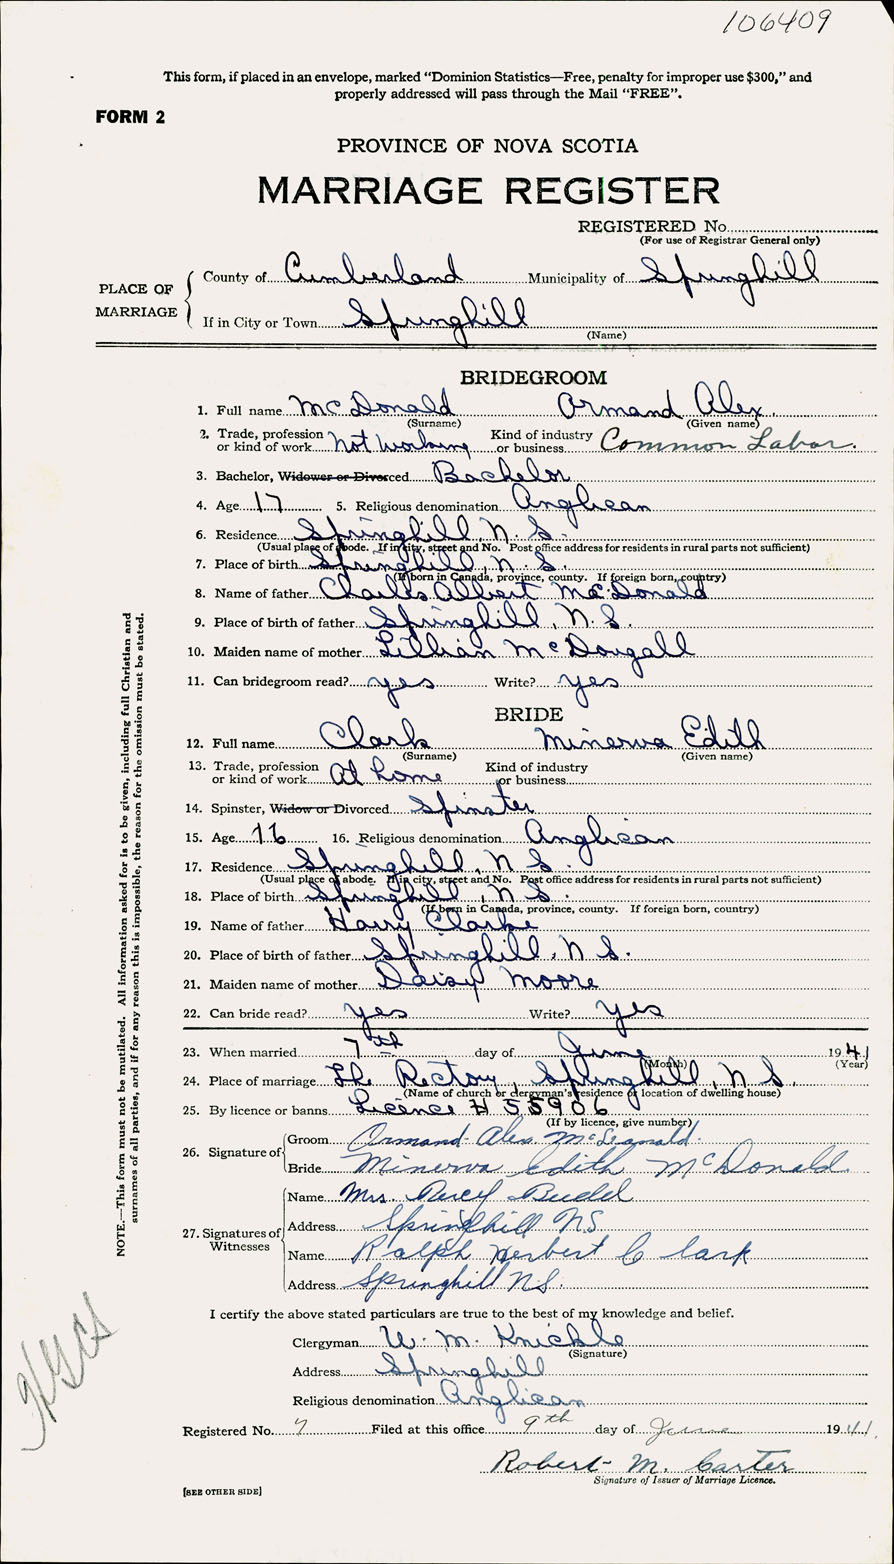 106409
This form, if placed in an envelope, marked “Dominion Statistics—Free, penalty for improper use $300,” and
properly addressed will pass through the Mail “FREE”.
FORM 2
PROVINCE OF NOVA SCOTIA
MARRIAGE REGISTER
REGISTERED No.
(For use of Registrar General only)
PLACE OF MARRIAGE
County of Cumberland Municipality of Springhill
If in City or Town Springhill
(Name)
BRIDEGROOM
1. Full name McDonald Ormand Alex.
(Surname) (Given name)
2. Trade, profession or kind of work Not working Kind of industry or business Common Labor.
3. Bachelor, Widower or Divorced Bachelor
4. Age 17 5. Religious denomination Anglican
6. Residence Springhill, N. S.
(Usual place of abode. If in city, street and No. Post office address for residents in rural parts not sufficient)
7. Place of birth Springhill, N. S.
(If born in Canada, province, county. If foreign born, country)
8. Name of father Charles Albert McDonald
9. Place of birth of father Springhill, N. S.
10. Maiden name of mother Lillian McDougall
11. Can bridegroom read? yes Write? yes
BRIDE
12. Full name Clark Minerva Edith
(Surname) (Given name)
13. Trade, profession or kind of work At home Kind of industry or business
14. Spinster, Widow or Divorced Spinster
15. Age 16 16. Religious denomination Anglican
17. Residence Springhill, N S.
(Usual place of abode. If in city, street and No. Post office address for residents in rural parts not sufficient)
18. Place of birth Springhill, N S.
(If born in Canada, province, county. If foreign born, country)
19. Name of father Harry Clarke
20. Place of birth of father Springhill, N S.
21. Maiden name of mother Daisy Moore
22. Can bride read? yes Write? yes
23. When married 7th day of June 1941
(Month) (Year)
24. Place of marriage The Rectory, Springhill, N S.
(Name of church or clergyman's residence or location of dwelling house)
25. By licence or banns Licence # 55906
(If by licence, give number)
26. Signature of
Groom Ormand Alex McDonald.
Bride Minerva Edith McDonald.
27. Signatures of Witnesses
Name Mrs. Percy Budd
Address Springhill NS
Name Ralph Herbert Clark
Address Springhill N.S.
I certify the above stated particulars are true to the best of my knowledge and belief.
Clergyman W. M. Knickle
(Signature)
Address Springhill
Religious denomination Anglican
Registered No. 7 Filed at this office 9th day of June 1941.
Robert M. Carter
Signature of Issuer of Marriage Licence.
[SEE OTHER SIDE]
NOTE.—This form must not be mutilated. All information asked for is to be given, including full Christian and
surnames of all parties, and if for any reason this is impossible, the reason for the omission must be stated.